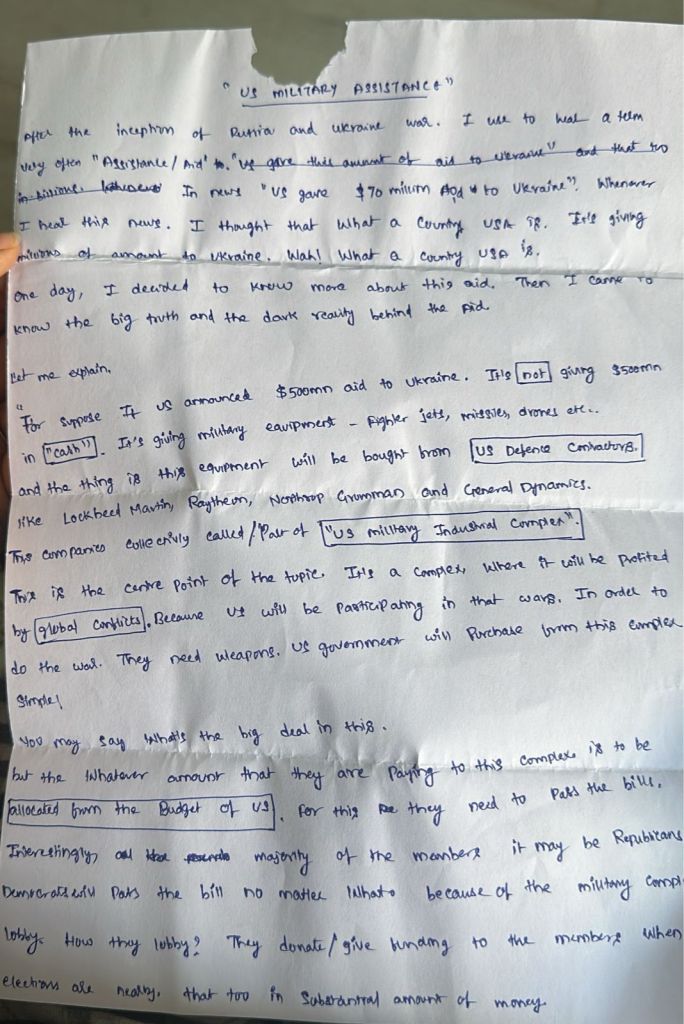 "US MILITARY ASSISTANCE"
After the inception of Russia and ukraine war. I use to hear a term
very often "Assistance/Aid" to. "US gave this amount of aid to ukraine" and that too
in billions. In news "US gave $70 million Aid to Ukraine". Whenever
I hear this news. I thought that what a Country USA is. It's giving
millions of amount to ukraine. Wah! What a country USA is.
One day, I decided to know more about this aid. Then I came to
know the big truth and the dark reality behind the Aid.
Let me explain.
"For suppose If US announced $500mn aid to ukraine. It's not giving $500mn
in "cash"). It's giving military equipment - Fighter jets, missiles, drones etc..
and the thing is this equipment will be bought from US Defence Contractors.
like Lockheed Martin, Raytheon, Northrop Grumman and General Dynamics.
This companies collectivly called/Part of "US military Industrial Complex".
This is the centre point of the topic. It's a complex, where it will be profited
by global Conflicts. Because US will be participating in that wars. In order to
do the war. They need weapons. US government will Purchase from this complex
Simple!
You may say what's the big deal in this.
but the Whatever amount that they are paying to this complex is to be
allocated from the Budget of US. For this they need to Pass the bills.
Interestingly, majority of the members it may be Republicans
Democrats will Pass the bill no matter What. because of the military Compl
lobby. How they lobby? They donate/give funding to the members when
elections are nearby. that too in Substantial amount of money.